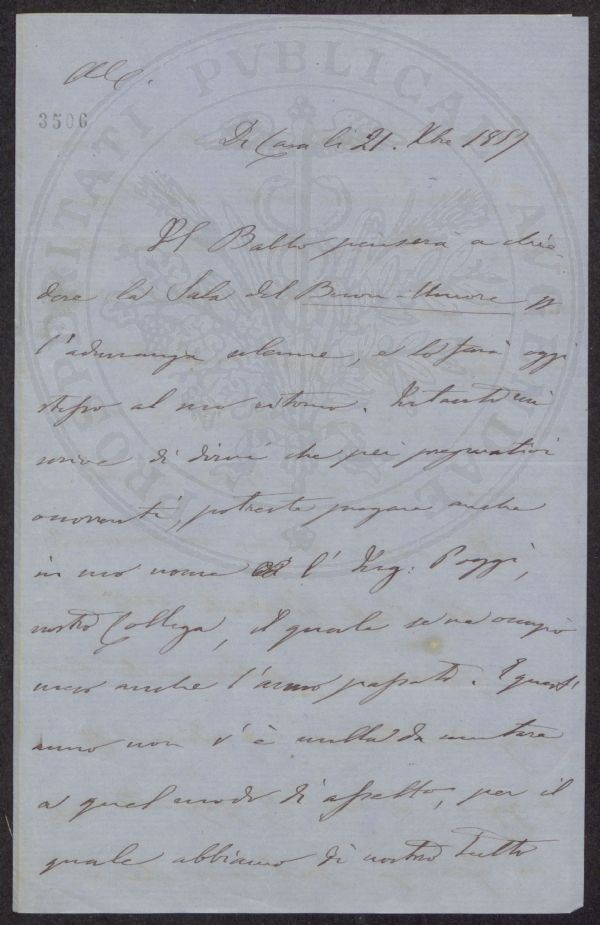 3506
Di Casa li 21. Xbre 1857
Il Balbo penserà a chie-
dere la Sala del Buon-Umore p
l'adunanza solenne, e lo farà oggi
stesso al suo ritorno. Intanto mi
scrive di dirvi che pei preparativi
occorrenti, potreste pregare anche
in suo nome l'Ing: Poggi,
nostro Collega, il quale se ne occupò
meco anche l'anno passato. E quest'
anno non v'è nulla da mutare
a quel modo di assetto, per il
quale abbiamo di nostro tutto
PROSPERITATI PVBLICAE AVGENDAE